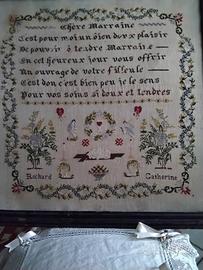 Chère Marraine
C'est pour moi un bien doux plaisir
De pouvoir ô tendre Marraine
En cet heureux jour vous offrir
Un ouvrage de votre filleule
C'est don c'est bien peu je le sens
Pour vos soins si doux et tendres
Richard Catherine